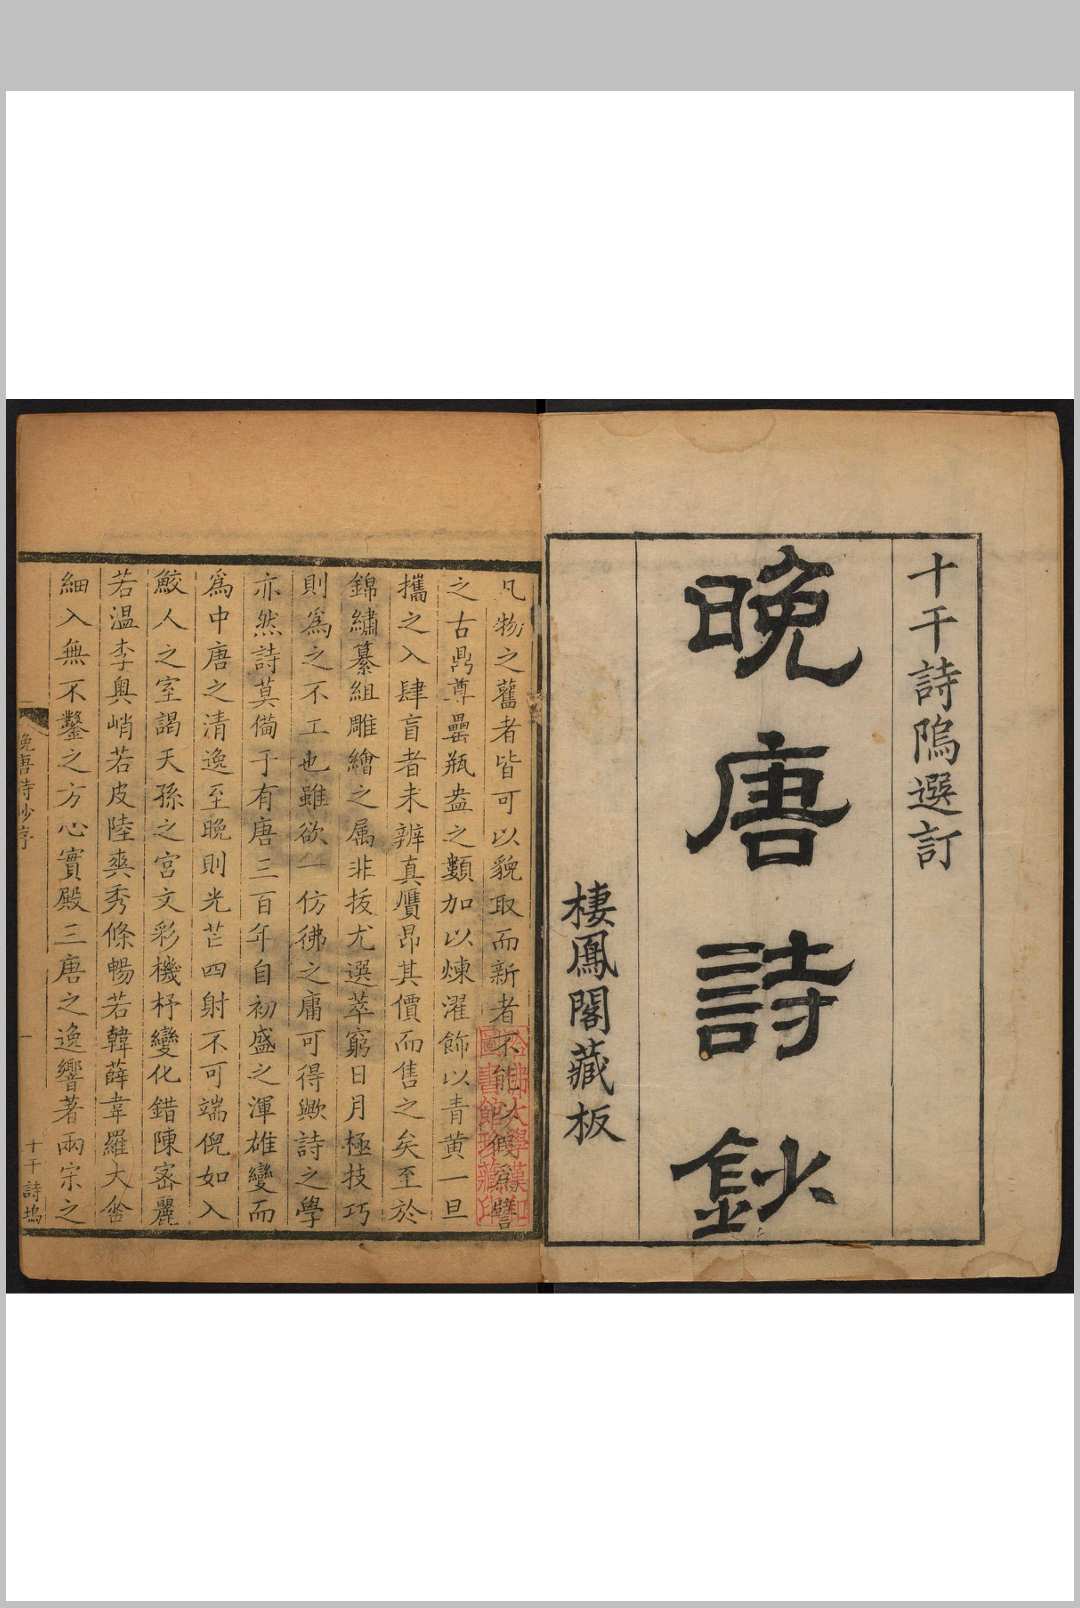 十干詩隖選訂
晚唐詩鈔
棲鳳閣藏板
凡物之舊者皆可以貌取而新者不能以假爲譬
之古鼎尊罍瓶盎之類加以煉濯飾以青黃一旦
攜之入肆盲者未辨真贋昂其價而售之矣至於
錦繡纂組雕繪之属非拔尤選萃窮日月極技巧
則爲之不工也雖欲一仿彿之庸可得歟詩之學
亦然詩莫僃于有唐三百年自初盛之渾雄變而
爲中唐之清逸至晚則光芒四射不可端倪如入
鮫人之室謁天孫之宮文彩機杼變化錯陳宻麗
若溫李奥峭若皮陸爽秀條暢若韓薛韋羅大
細入無不鑿之方心實殿三唐之逸響著兩宗之
晚唐詩鈔序
一
十干詩塢
哈佛大學漢和
圖書館珍藏印